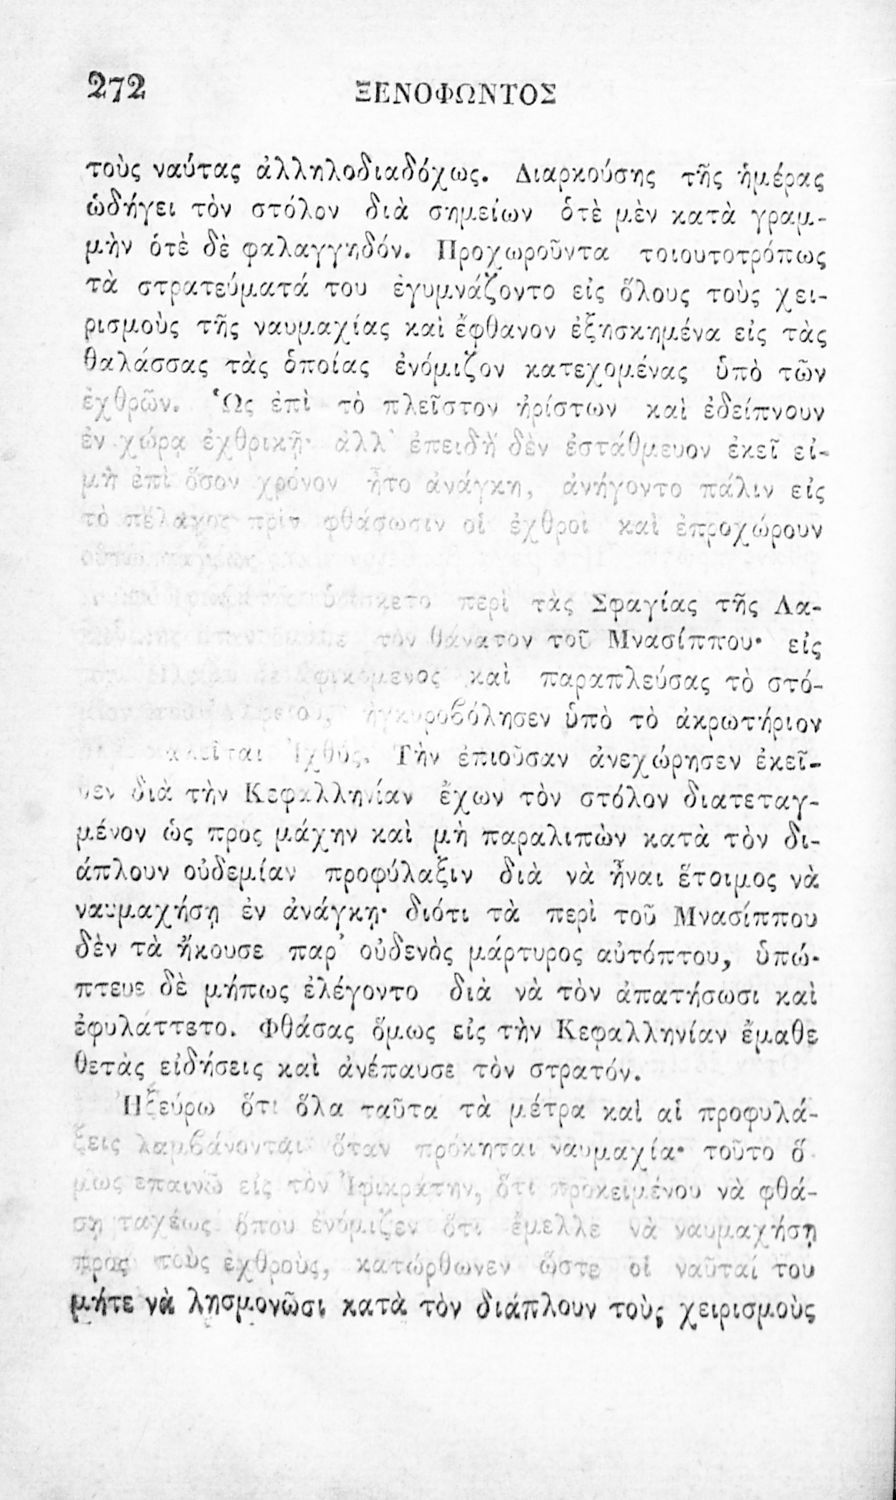 272
ΞΕΝΟΦΩΝΤΟΣ
τοὺς ναύτας ἀλληλοδιαδόχως. Διαρκούσης τῆς ἡμέρας
ὡδήγει τὸν στόλον διὰ σημείων ὁτὲ μὲν κατὰ γραμ-
μὴν ὁτὲ δὲ φαλαγγηδόν. Προχωροῦντα τοιουτοτρόπως
τὰ στρατεύματά του ἐγυμνάζοντο εἰς ὅλους τοὺς χει-
ρισμοὺς τῆς ναυμαχίας καὶ ἔφθανον ἐξησκημένα εἰς τὰς
θαλάσσας τὰς ὁποίας ἐνόμιζον κατεχομένας ὑπὸ τῶν
ἐχθρῶν. Ὡς ἐπὶ τὸ πλεῖστον ἠρίστων καὶ ἐδείπνουν
ἐν χώρᾳ ἐχθρικῇ· ἀλλ' ἐπειδὴ δὲν ἐστάθμευον ἐκεῖ εἰ-
μὴ ἐπὶ ὅσον χρόνον ἦτο ἀνάγκη, ἀνήγοντο πάλιν εἰς
τὸ πέλαγος πρὶν φθάσωσιν οἱ ἐχθροὶ καὶ ἐπροχώρουν
περὶ τὰς Σφαγίας τῆς Λα-
τὸν θάνατον τοῦ Μνασίππου· εἰς
καὶ παραπλεύσας τὸ στό-
ἠγκυροβόλησεν ὑπὸ τὸ ἀκρωτήριον
καλεῖται Ἰχθύς. Τὴν ἐπιοῦσαν ἀνεχώρησεν ἐκεῖ-
θεν διὰ τὴν Κεφαλληνίαν ἔχων τὸν στόλον διατεταγ-
μένον ὡς πρὸς μάχην καὶ μὴ παραλιπὼν κατὰ τὸν δι-
άπλουν οὐδεμίαν προφύλαξιν διὰ νὰ ἦναι ἕτοιμος νὰ
ναυμαχήσῃ ἐν ἀνάγκῃ· διότι τὰ περὶ τοῦ Μνασίππου
δὲν τὰ ἤκουσε παρ' οὐδενὸς μάρτυρος αὐτόπτου, ὑπώ-
πτευε δὲ μήπως ἐλέγοντο διὰ νὰ τὸν ἀπατήσωσι καὶ
ἐφυλάττετο. Φθάσας ὅμως εἰς τὴν Κεφαλληνίαν ἔμαθε
θετὰς εἰδήσεις καὶ ἀνέπαυσε τὸν στρατόν.
Ἠξεύρω ὅτι ὅλα ταῦτα τὰ μέτρα καὶ αἱ προφυλά-
ξεις λαμβάνονται ὅταν πρόκηται ναυμαχία· τοῦτο ὅ-
μως ἐπαινῶ εἰς τὸν Ἰφικράτην, ὅτι προκειμένου νὰ φθά-
σῃ ταχέως ὅπου ἐνόμιζεν ὅτι ἔμελλε νὰ ναυμαχήσῃ
πρὸς τοὺς ἐχθροὺς, κατώρθωνεν ὥστε οἱ ναῦταί του
μήτε νὰ λησμονῶσι κατὰ τὸν διάπλουν τοὺς χειρισμοὺς